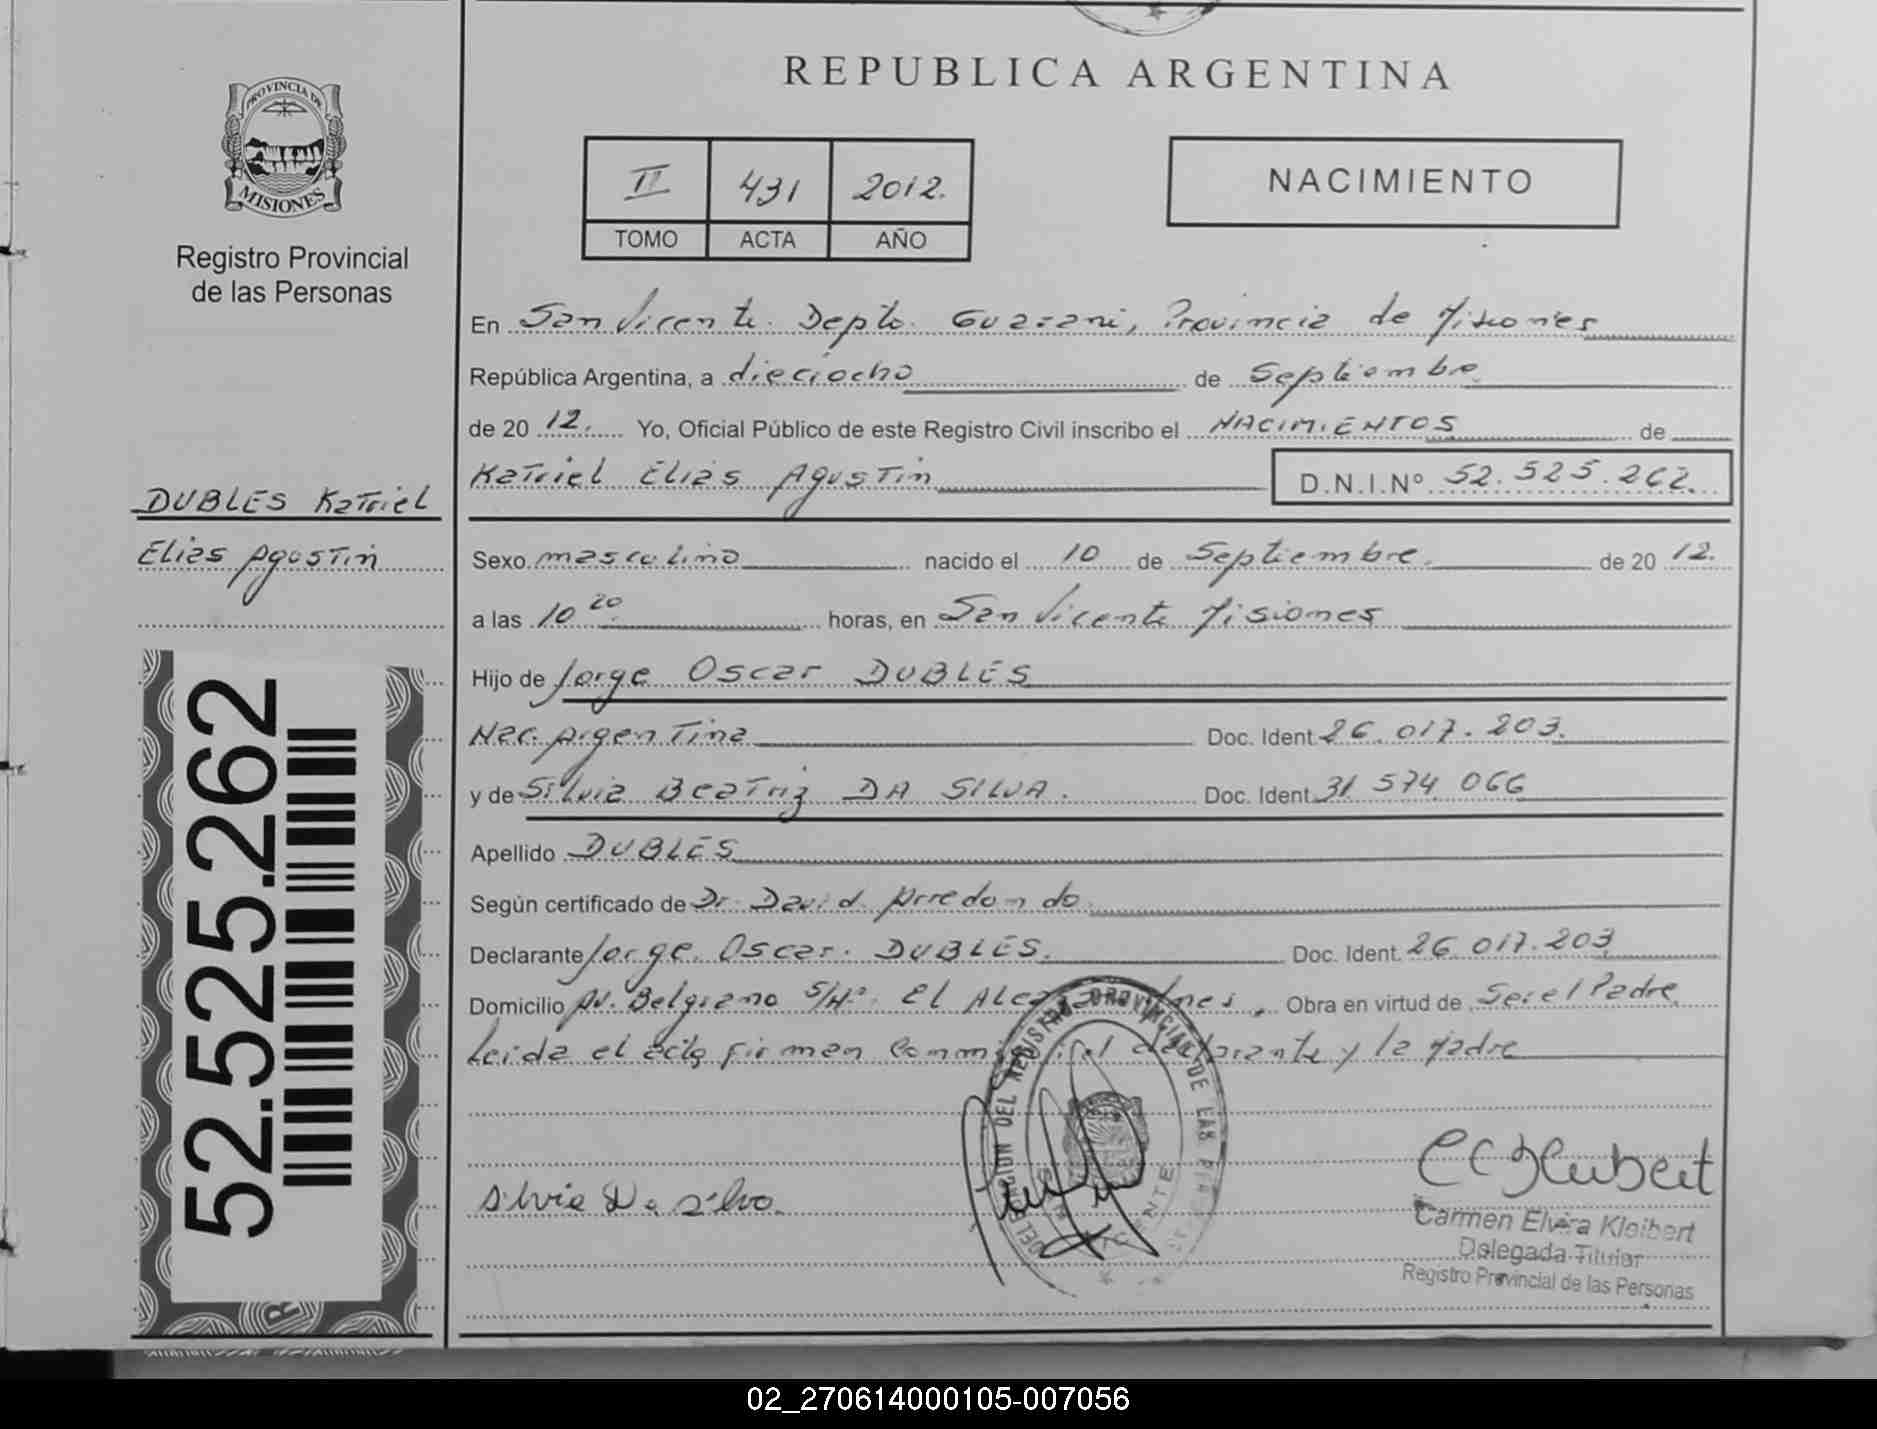 REPUBLICA ARGENTINA
PROVINCIA DE
MISIONES
Registro Provincial
de las Personas
II 431 2012.
TOMO ACTA AÑO
NACIMIENTO
En San Vicente. Depto. Guarani, Provincia de Misiones
República Argentina, a dieciocho de Septiembre
de 20 12. Yo, Oficial Público de este Registro Civil inscribo el NACIMIENTOS de
Katriel Elias Agustin D.N.I.Nº 52.525.262.
DUBLES Katriel
Elias Agustin
Sexo masculino nacido el 10 de Septiembre. de 20 12.
a las 10 20 horas, en San Vicente Misiones
Hijo de Jorge Oscar DUBLES
Nac. Argentina Doc. Ident. 26.017.203.
y de Silvia Beatriz DA SILVA. Doc. Ident. 31 574 066
Apellido DUBLES
Según certificado de Dr. David Arredondo.
Declarante Jorge. Oscar. DUBLES. Doc. Ident. 26.017.203
Domicilio Av. Belgrano S/Nº. El Alcazar Mnes, Obra en virtud de Ser el Padre
Leida el acta firman conmigo el declarante y la Madre
52.525.262
DELEGACION DEL REGISTRO PROVINCIAL DE LAS
Silvia Da silva
Carmen Elvira Kleibert
Delegada Titular
Registro Provincial de las Personas
02_270614000105-007056